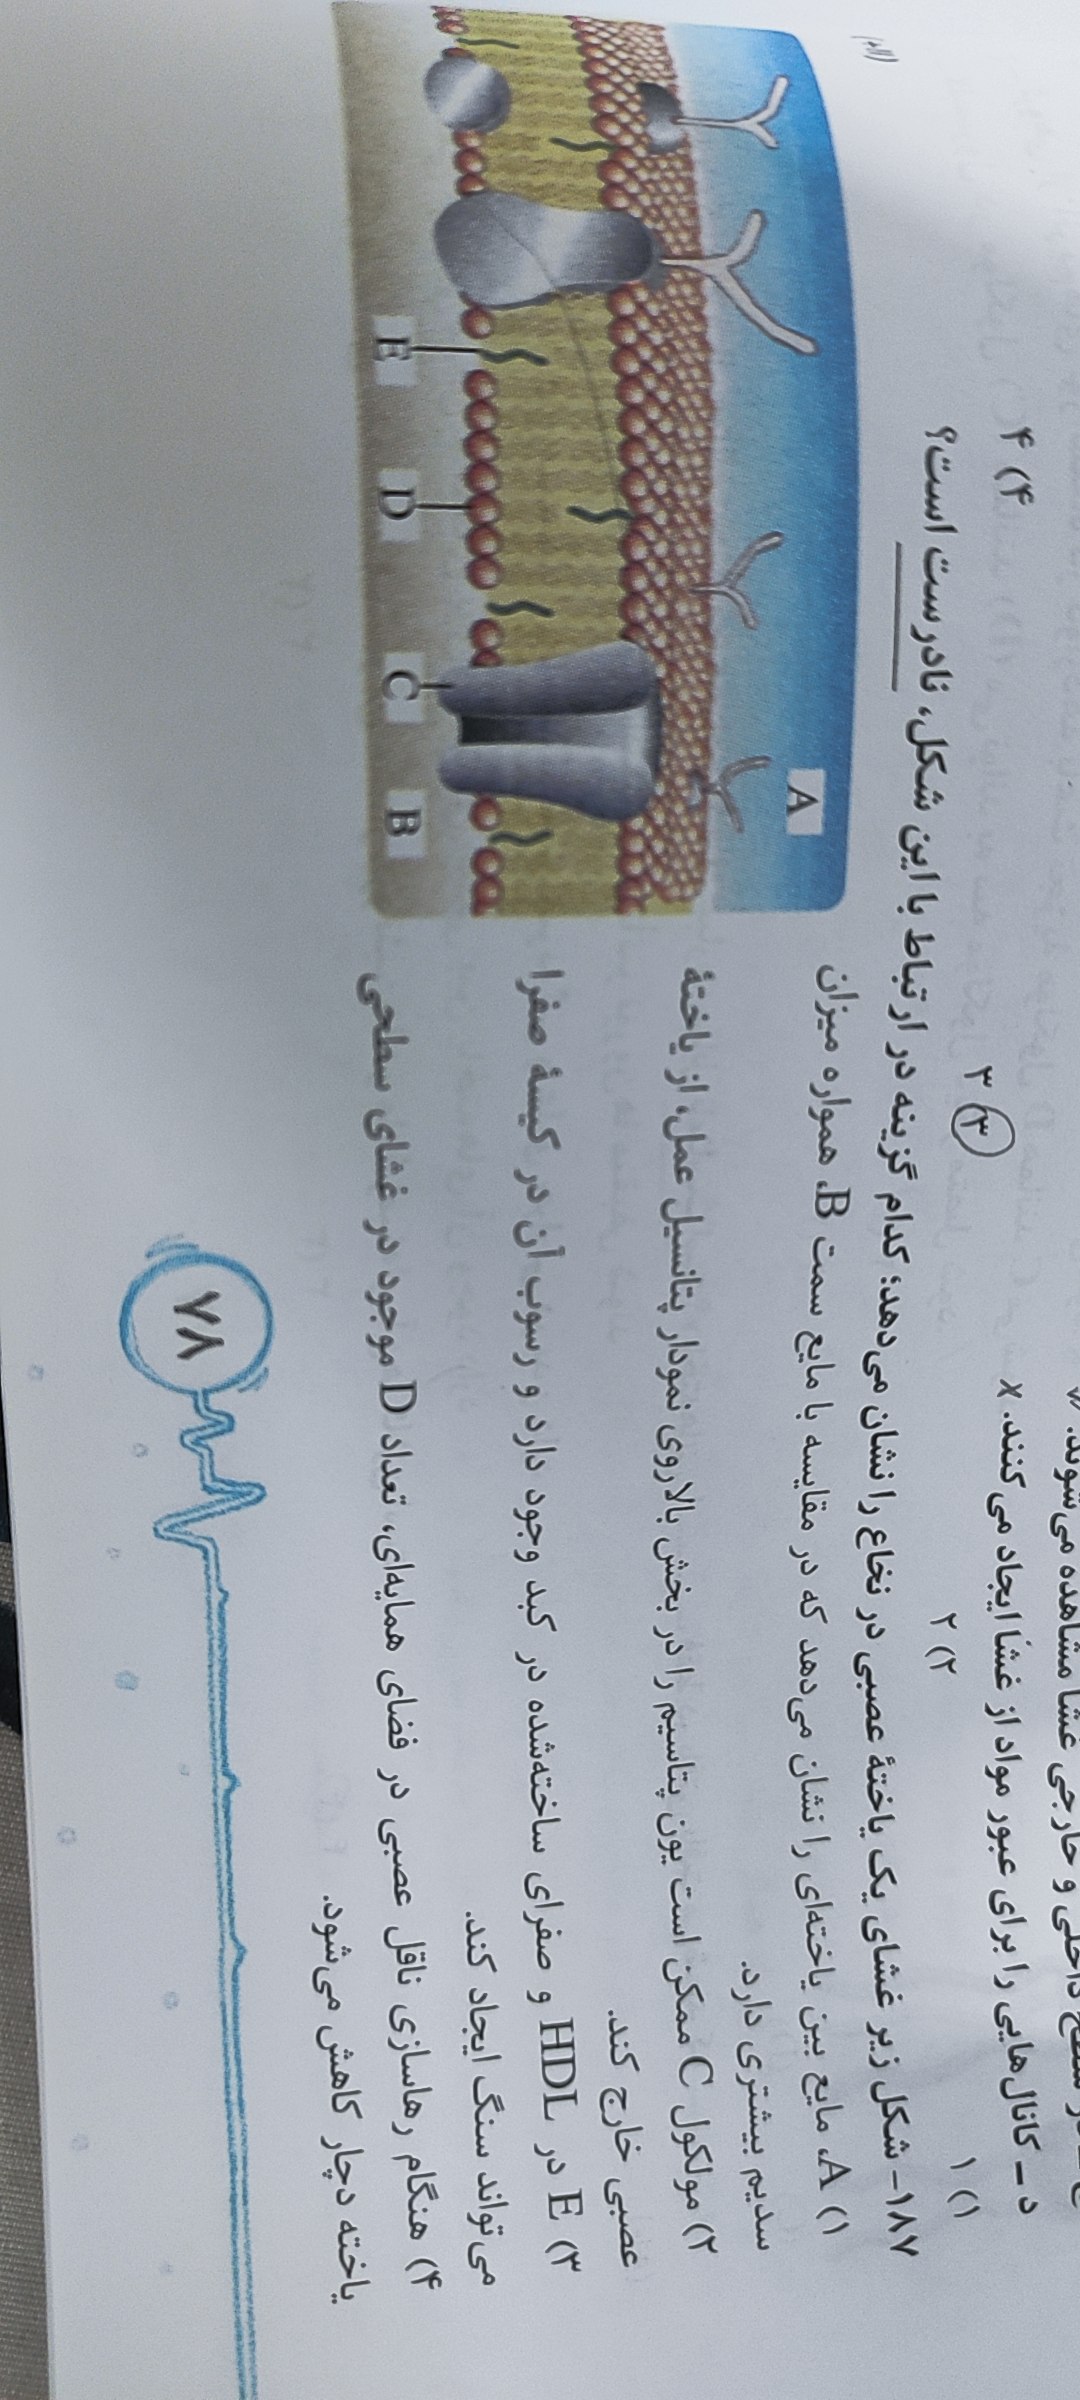 داخلی و خارجی غشا مشاهده می‌شوند.
د – کانال‌هایی را برای عبور مواد از غشا ایجاد می‌کنند. x
۱) ۱
۲) ۲
۳) ۳
۴) ۴
۱۸۷- شکل زیر غشای یک یاختهٔ عصبی در نخاع را نشان می‌دهد؛ کدام گزینه در ارتباط با این شکل، نادرست است؟
۱) A، مایع بین یاخته‌ای را نشان می‌دهد که در مقایسه با مایع سمت B، همواره میزان
سدیم بیشتری دارد.
۲) مولکول C ممکن است یون پتاسیم را در بخش بالاروی نمودار پتانسیل عمل، از یاختهٔ
عصبی خارج کند.
۳) E در HDL و صفرای ساخته‌شده در کبد وجود دارد و رسوب آن در کیسهٔ صفرا
می‌تواند سنگ ایجاد کند.
۴) هنگام رهاسازی ناقل عصبی در فضای همایه‌ای، تعداد D موجود در غشای سطحی
یاخته دچار کاهش می‌شود.
A
B
C
D
E
۷۸